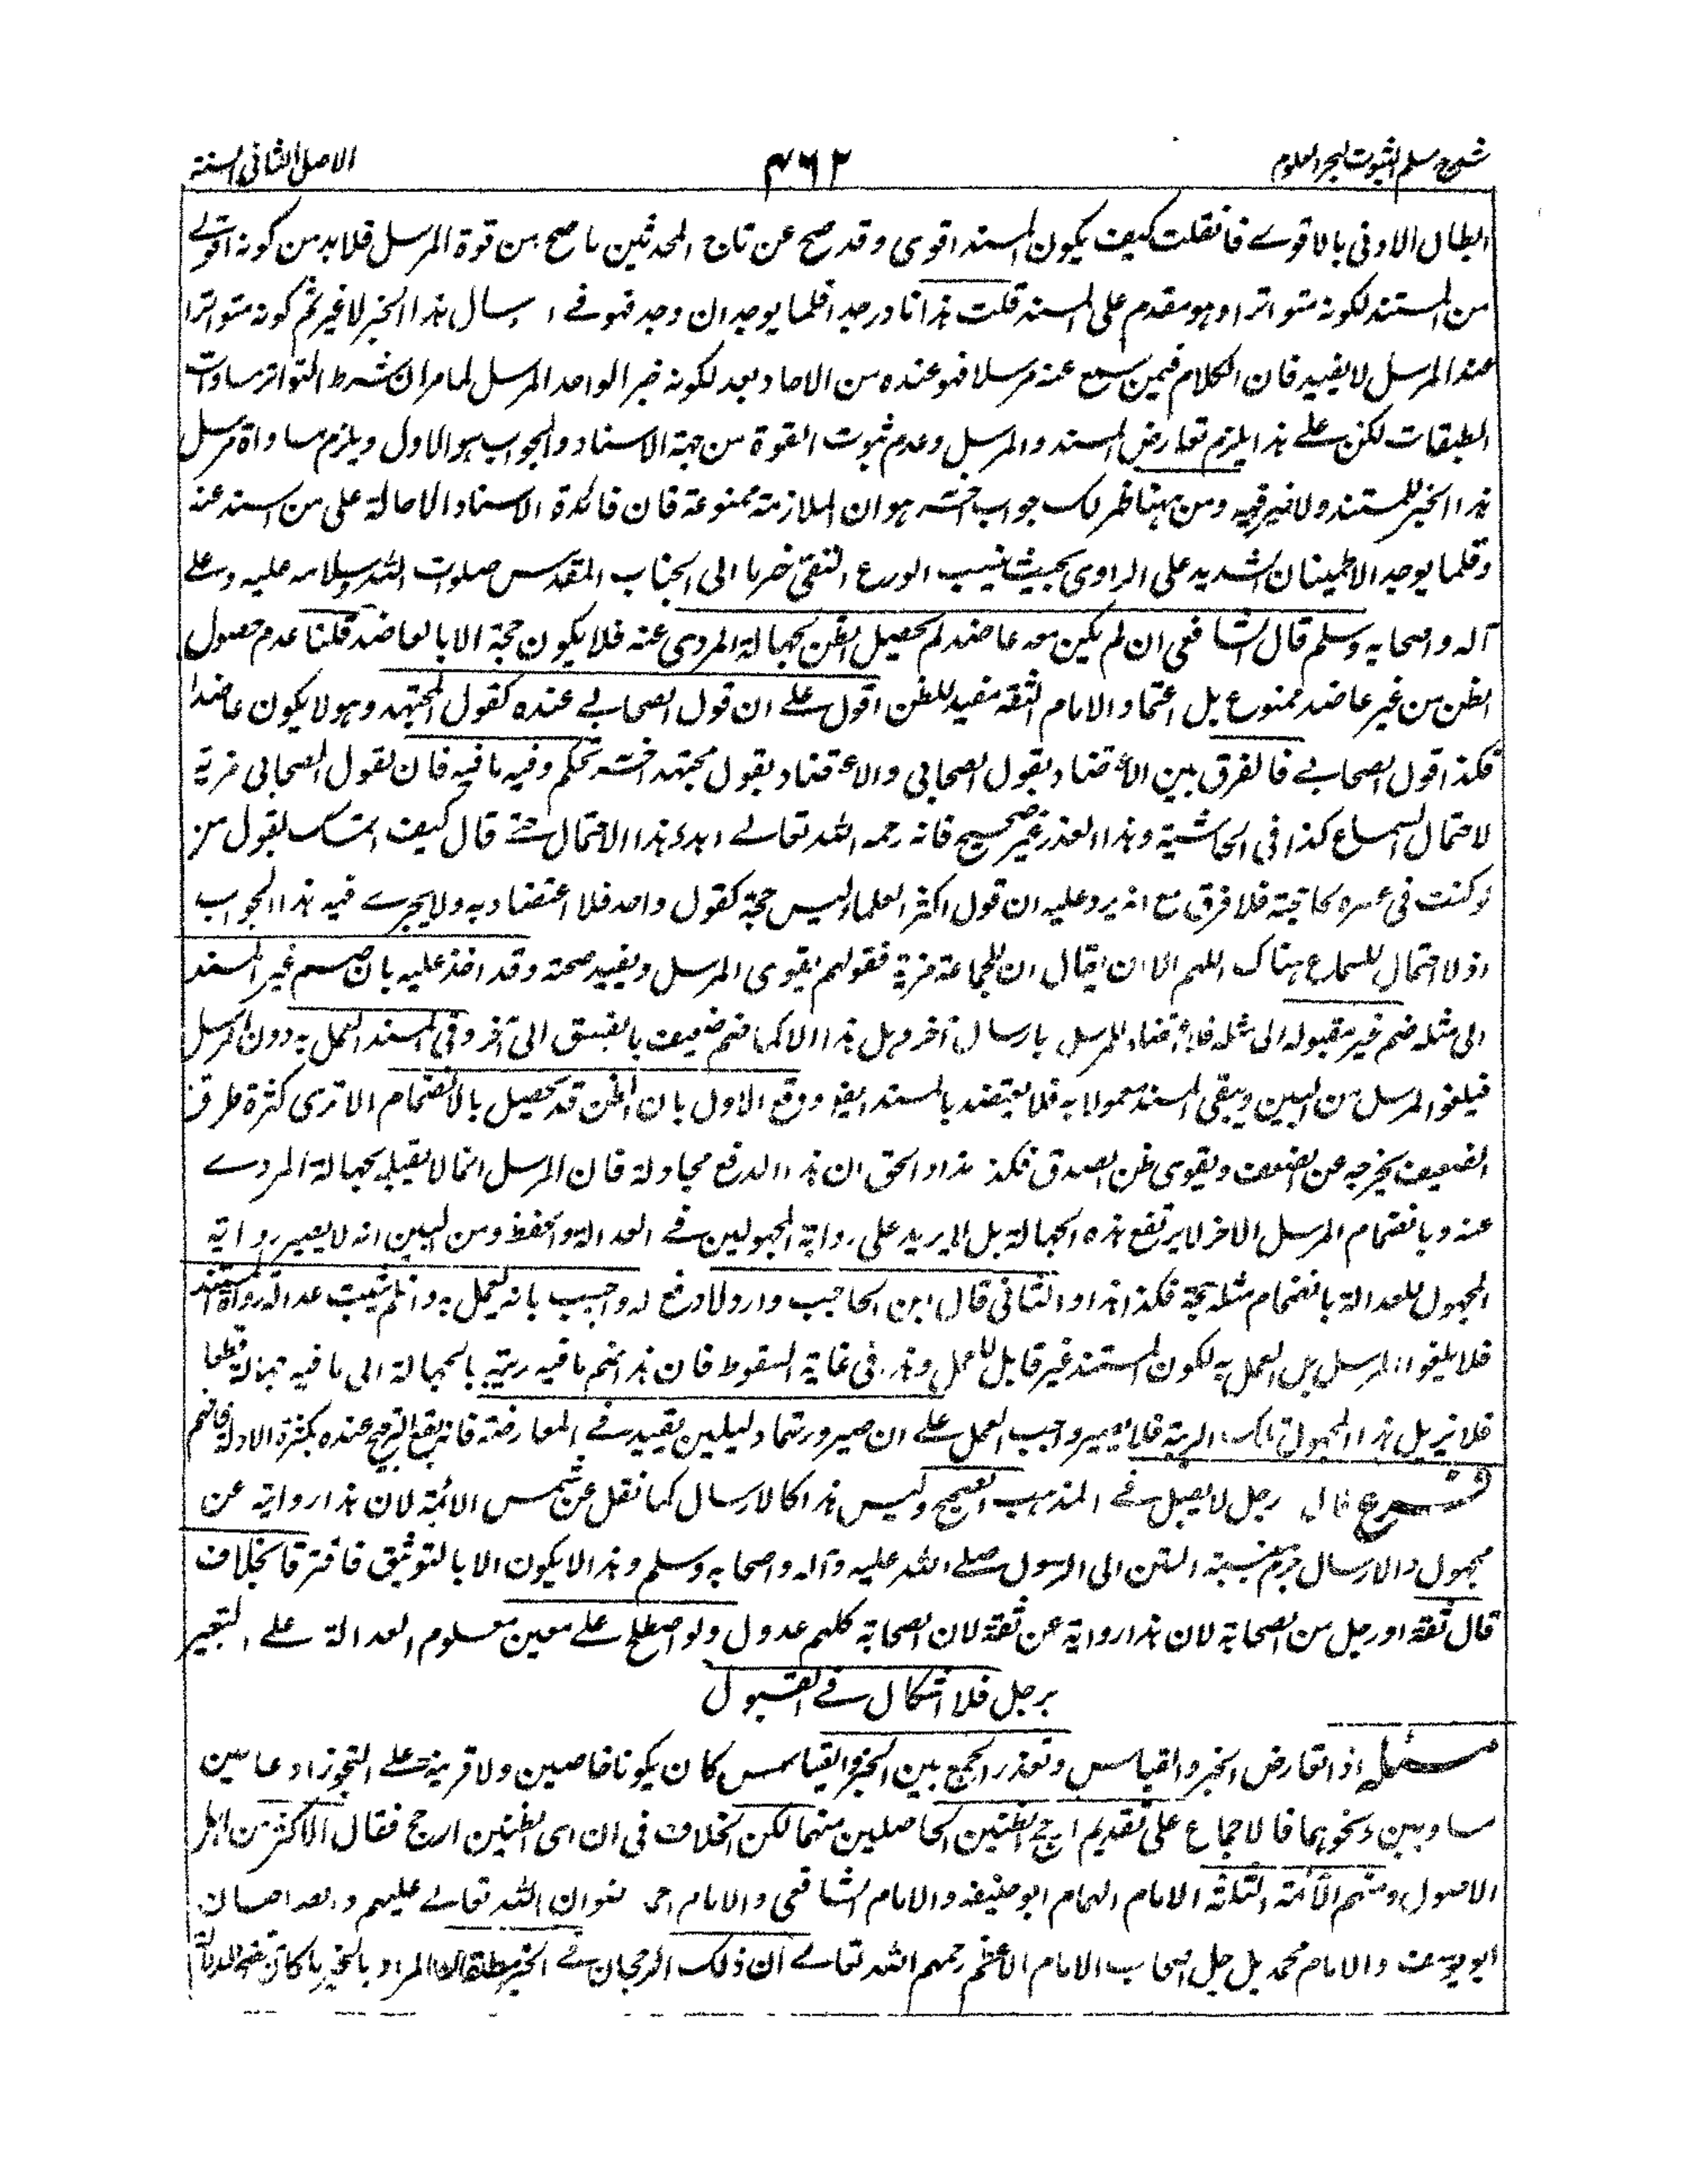 شرح مسلم الثبوت لبحر العلوم
٤٦٢
الاصل الثانى السنة
ابطال الادنى بالاقوى فان قلت كيف يكون المسند اقوى وقد صح عن تاج المحدثين ما صح من قوة المرسل فلا بد من كونه اقوى
من المسند لكونه متواترا وهو مقدم على المسند قلت هذا نادر جدا قلما يوجد ان وجد فهو فى ارسال هذا الخبر لا غير ثم كونه متواترا
عند المرسل لا يفيد فان الكلام فيمن سمع عنه مرسلا فهو عنده من الاحاد بعد لكونه خبر الواحد المرسل لما مر ان شرط التواتر مساوات
الطبقات لكن على هذا يلزم تعارض المسند والمرسل وعدم ثبوت القوة من جهة الاسناد والجواب هو الاول ويلزم مساواة مرسل
هذا الخبر للمسند ولا ضير فيه ومن ههنا ظهر لك جواب اخر هو ان الملازمة ممنوعة فان فائدة الاسناد الاحالة على من اسند عنه
وقلما يوجد الاطمينان الشديد على الراوى بحيث ينسب الورع التقى خبرها الى الجناب المقدس صلوات الله وسلامه عليه وعلى
آله واصحابه وسلم قال الشافعى ان لم يكن معه عاضد لم يحصل الظن لجهالة المروى عنه فلا يكون حجة الا بالعاضد قلنا عدم حصول
الظن من غير عاضد ممنوع بل اعتماد الامام الثقة مفيد للظن اقول على ان قول الصحابى عنده كقول المجتهد وهو لا يكون عاضدا
فكذا قول الصحابى فالفرق بين الاعتضاد بقول الصحابى والاعتضاد بقول مجتهد اخر تحكم وفيه ما فيه فان لقول الصحابى مزية
لاحتمال السماع كذا فى الحاشية وهذا العذر غير صحيح فانه رحمه الله تعالى اهدر هذا الاحتمال حتى قال كيف اتمسك بقول من
لو كنت فى عصره لحاججته فلا فرق مع انه يرد عليه ان قول اكثر العلماء ليس حجة كقول واحد فلا اعتضاد به ولا يجرى فيه هذا الجواب
اذ لا احتمال للسماع هناك اللهم الا ان يقال ان للجماعة مزية فقولهم يقوى المرسل ويفيد صحته وقد اخذ عليه بان ضم غير المسند
الى مثله ضم غير مقبول الى مثله فلا اعتضاد للمرسل بارسال آخر وهل هذا الا كما ضم ضعيف بالفسق الى آخر وفى المسند العمل به دون المرسل
فيلغو المرسل من البين ويبقى المسند معمولا به فلا يعتضد بالمسند ايضا ودفع الاول بان الظن قد يحصل بالانضمام الا ترى كثرة طرق
الضعيف يخرجه عن الضعف ويقوى ظن الصدق فكذا هذا والحق ان هذا الدفع مجادلة فان المرسل انما لا يقبل لجهالة المروى
عنه وبانضمام المرسل الاخر لا يرتفع هذه الجهالة بل لا يزيد على رواية المجهولين فى العدالة والحفظ ومن البين انه لا يصير رواية
المجهول للعدالة بانضمام مثله حجة فكذا هذا والثانى قال ابن الحاجب وارد لا دفع له واجيب بانه يعمل به وان لم تثبت عدالة رواة المسند
فلا يلغو المرسل بل العمل به لكون المسند غير قابل للعمل وهذا فى غاية السقوط فان هذا ضم ما فيه ريبة بالجهالة الى ما فيه جهالة قطعا
فلا يزيل هذا المجهول تلك الريبة فلا يصير واجب العمل على ان صيرورتهما دليلين يفيد فى المعارضة فانه يقع الترجيح عنده بكثرة الادلة فافهم
فرع قال رجل لا يقبل فى المذهب الصحيح وليس هذا كالارسال كما نقل عن شمس الائمة لان هذا رواية عن
مجهول والارسال جزم بنسبة المتن الى الرسول صلى الله عليه وآله واصحابه وسلم وهذا لا يكون الا بالتوثيق فافترقا بخلاف
قال ثقة او رجل من الصحابة لان هذا رواية عن ثقة لان الصحابة كلهم عدول ولو اصطلح على معين معلوم العدالة على التعبير
برجل فلا اشكال فى القبول
مسئلة اذا تعارض الخبر والقياس وتعذر الجمع بين الخبر والقياس كان يكونا خاصين ولا قرينة على التجوز او عامين
مساويين ونحوهما فالاجماع على تقديم ارجح الظنين الحاصلين منهما لكن الخلاف فى ان اى الظنين ارجح فقال الاكثر من اهل
الاصول ومنهم الائمة الثلثة الامام الهمام ابو حنيفة والامام الشافعى والامام احمد رضوان الله تعالى عليهم والصاحبان
ابو يوسف والامام محمد بل جل اصحاب الامام الاعظم رحمهم الله تعالى ان ذلك الرجحان فى الخبر مطلقا المراد بالخبر ما كان